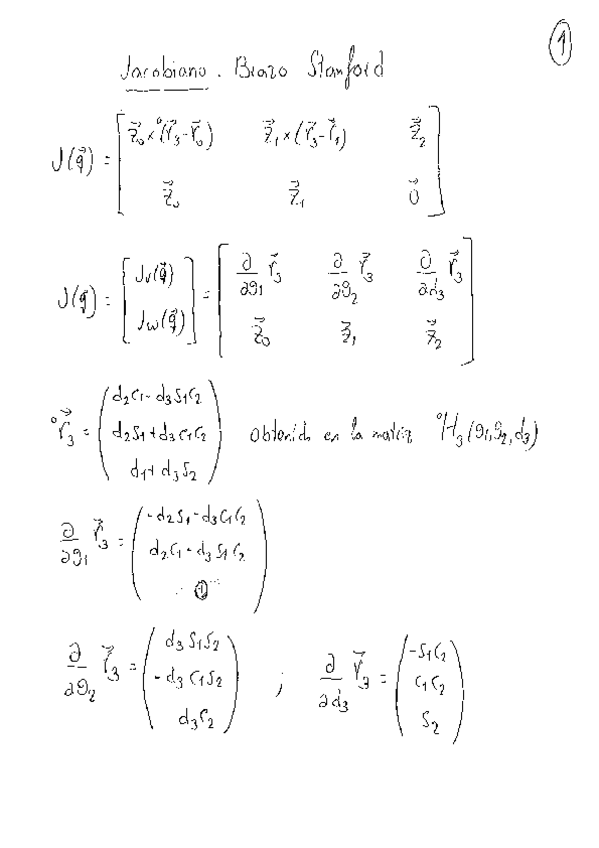 ①
Jacobiano. Brazo Stanford
J(q⃗) = [ z⃗₀ × ⁰(r⃗₃ - r⃗₀)   z⃗₁ × (r⃗₃ - r⃗₁)   z⃗₂ ; z⃗₀   z⃗₁   0⃗ ]
J(q⃗) = [ Jv(q⃗) ; Jw(q⃗) ] = [ ∂/∂θ1 r⃗₃   ∂/∂θ2 r⃗₃   ∂/∂d3 r⃗₃ ; z⃗₀   z⃗₁   z⃗₂ ]
⁰r⃗₃ = ( d2c1 - d3s1c2 ; d2s1 + d3c1c2 ; d1 + d3s2 ) obtenido en la matriz ⁰H₃(θ1, θ2, d3)
∂/∂θ1 r⃗₃ = ( -d2s1 - d3c1c2 ; d2c1 - d3s1c2 ; 0 )
∂/∂θ2 r⃗₃ = ( d3s1s2 ; -d3c1s2 ; d3c2 ) ; ∂/∂d3 r⃗₃ = ( -s1c2 ; c1c2 ; s2 )